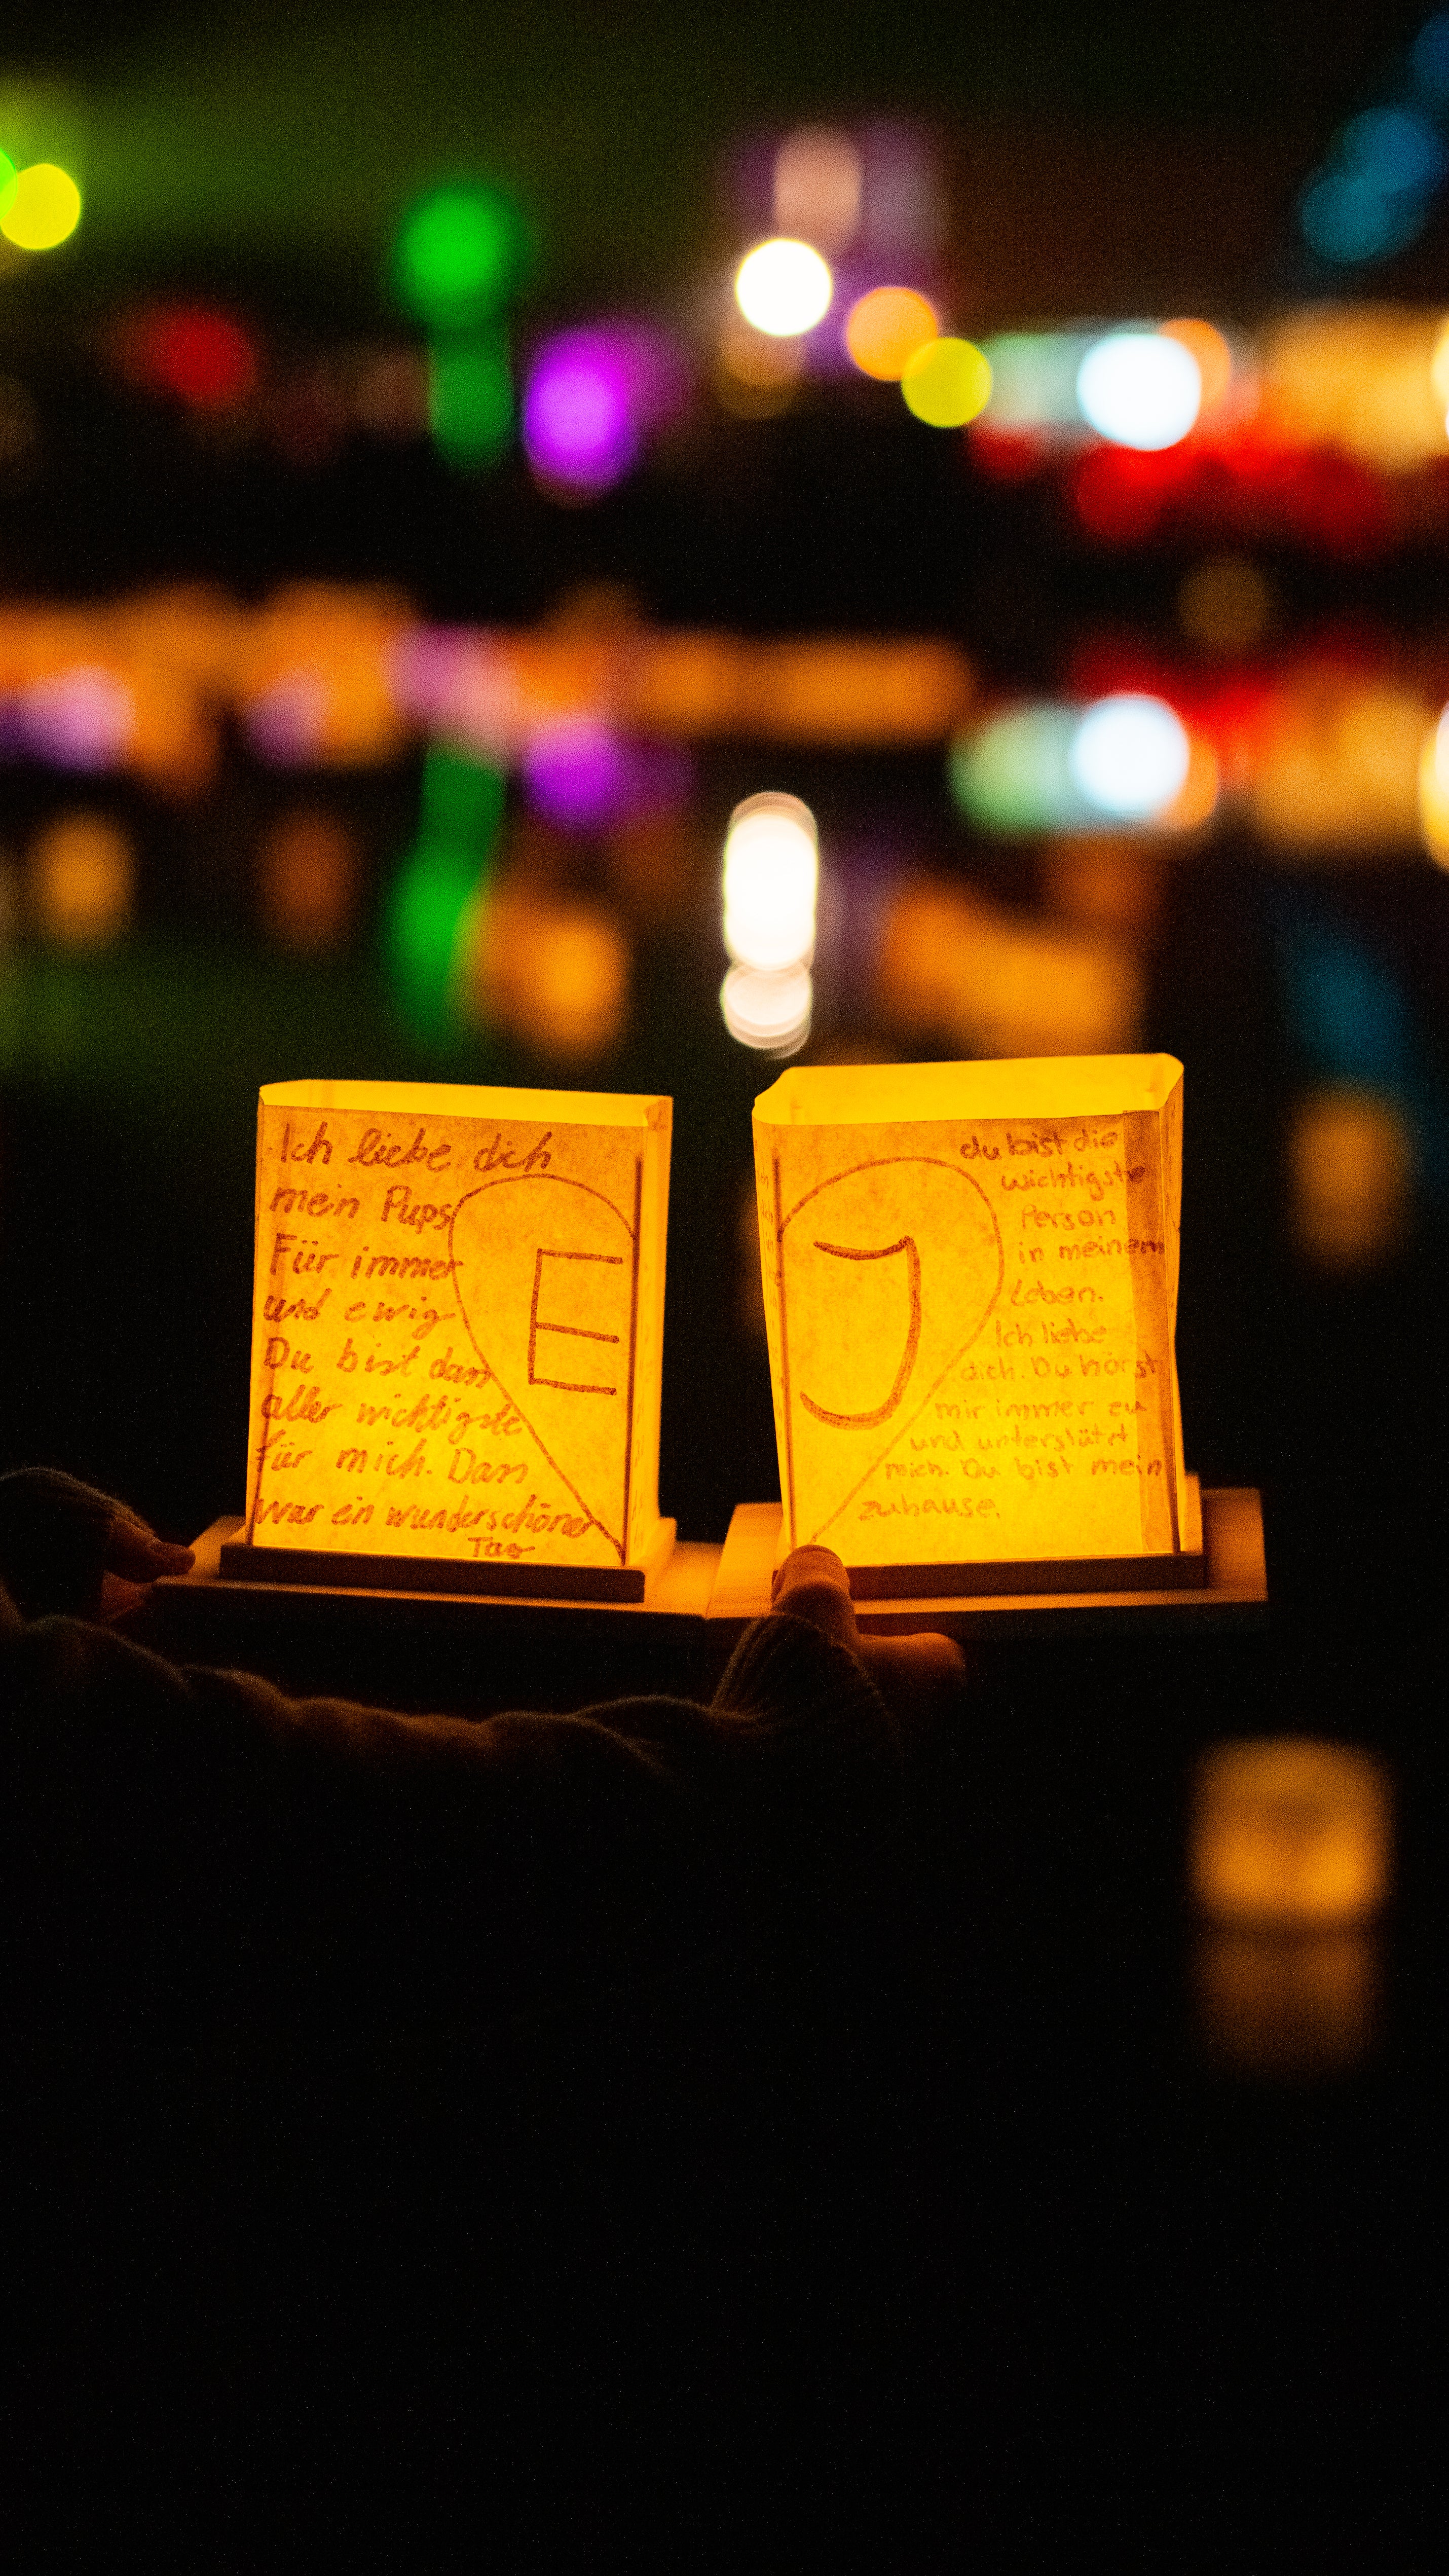 Ich liebe dich
mein Pups
Für immer
und ewig
Du bist dass
aller wichtigste
für mich. Dass
war ein wunderschöner
Tag
E
J
du bist die
wichtigste
Person
in meinem
Leben.
Ich liebe
dich. Du hörst
mir immer zu
und unterstützt
mich. Du bist mein
zuhause.